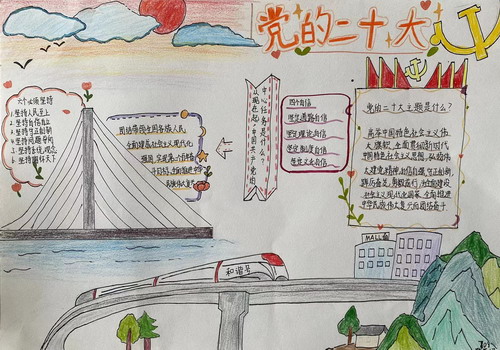 党的二十大
六个必须坚持
1. 坚持人民至上
2. 坚持自信自立
3. 坚持守正创新
4. 坚持问题导向
5. 坚持系统观念
6. 坚持胸怀天下
团结带领全国各族人民
全面建成社会主义现代化
强国、实现第二个百年
中心任务是什么?
现在起,中国共产党的
四个自信
坚定道路自信
坚定理论自信
坚定制度自信
坚定文化自信
党的二十大主题是什么?
高举中国特色社会主义伟
大旗帜,全面贯彻新时代
中国特色社会主义思想,弘扬伟
大建党精神,自信自强、守正创新,
踔厉奋发、勇毅前行,为全面建设
社会主义现代化国家、全面推进
中华民族伟大复兴而团结奋斗
MALL
和谐号